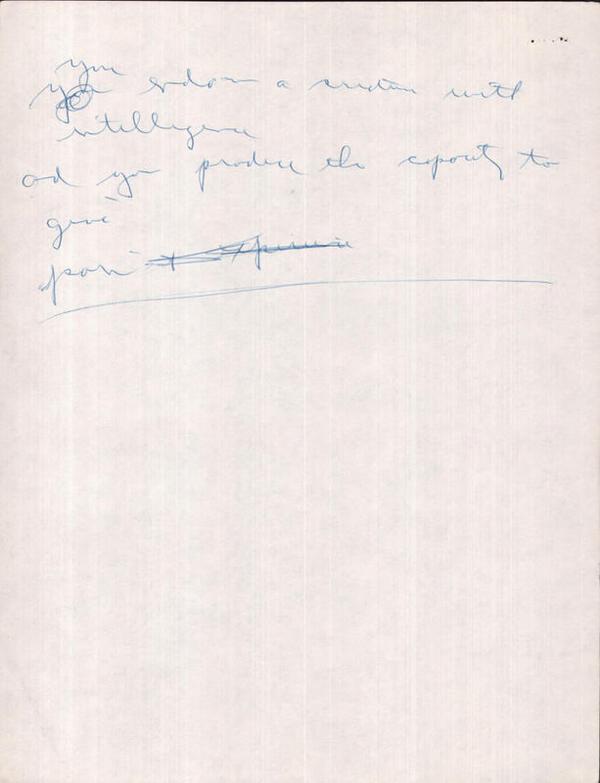 you
you endow a creature with
intelligence
and you produce the capacity to
give
pain